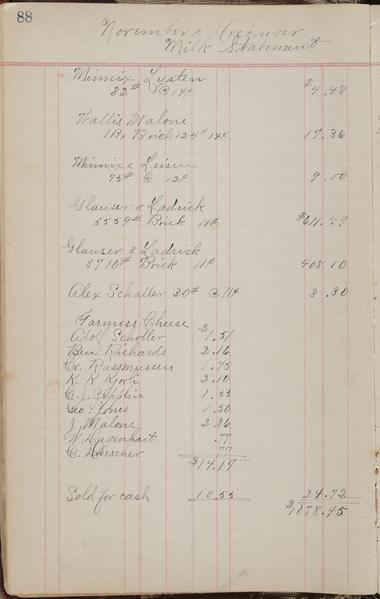 88
November & December
Milk Statement
Minnix Listen
32# @ 14¢ $4.48
Wallis Malone
1 Bx Brick 124# 14¢ 17.36
Minnix & Leisen
75# @ 12¢ 9.00
Glauser & Ladrick
5559# Brick 11¢ $611.49
Glauser & Ladrick
3710# Brick 11¢ 408.10
Alex Schaller 30# @ 11¢ 3.30
Farmers Cheese
Adolf Scholler $1.51
Ben Richards 2.16
Cr. Rasmussen
K. K. 2.10
C. J. 1.55
Geo. Jones 1.50
J. Malone 2.86
W. Dagenhart .77
C. .77
$14.17
Sold for cash 10.55 24.72
$1078.45